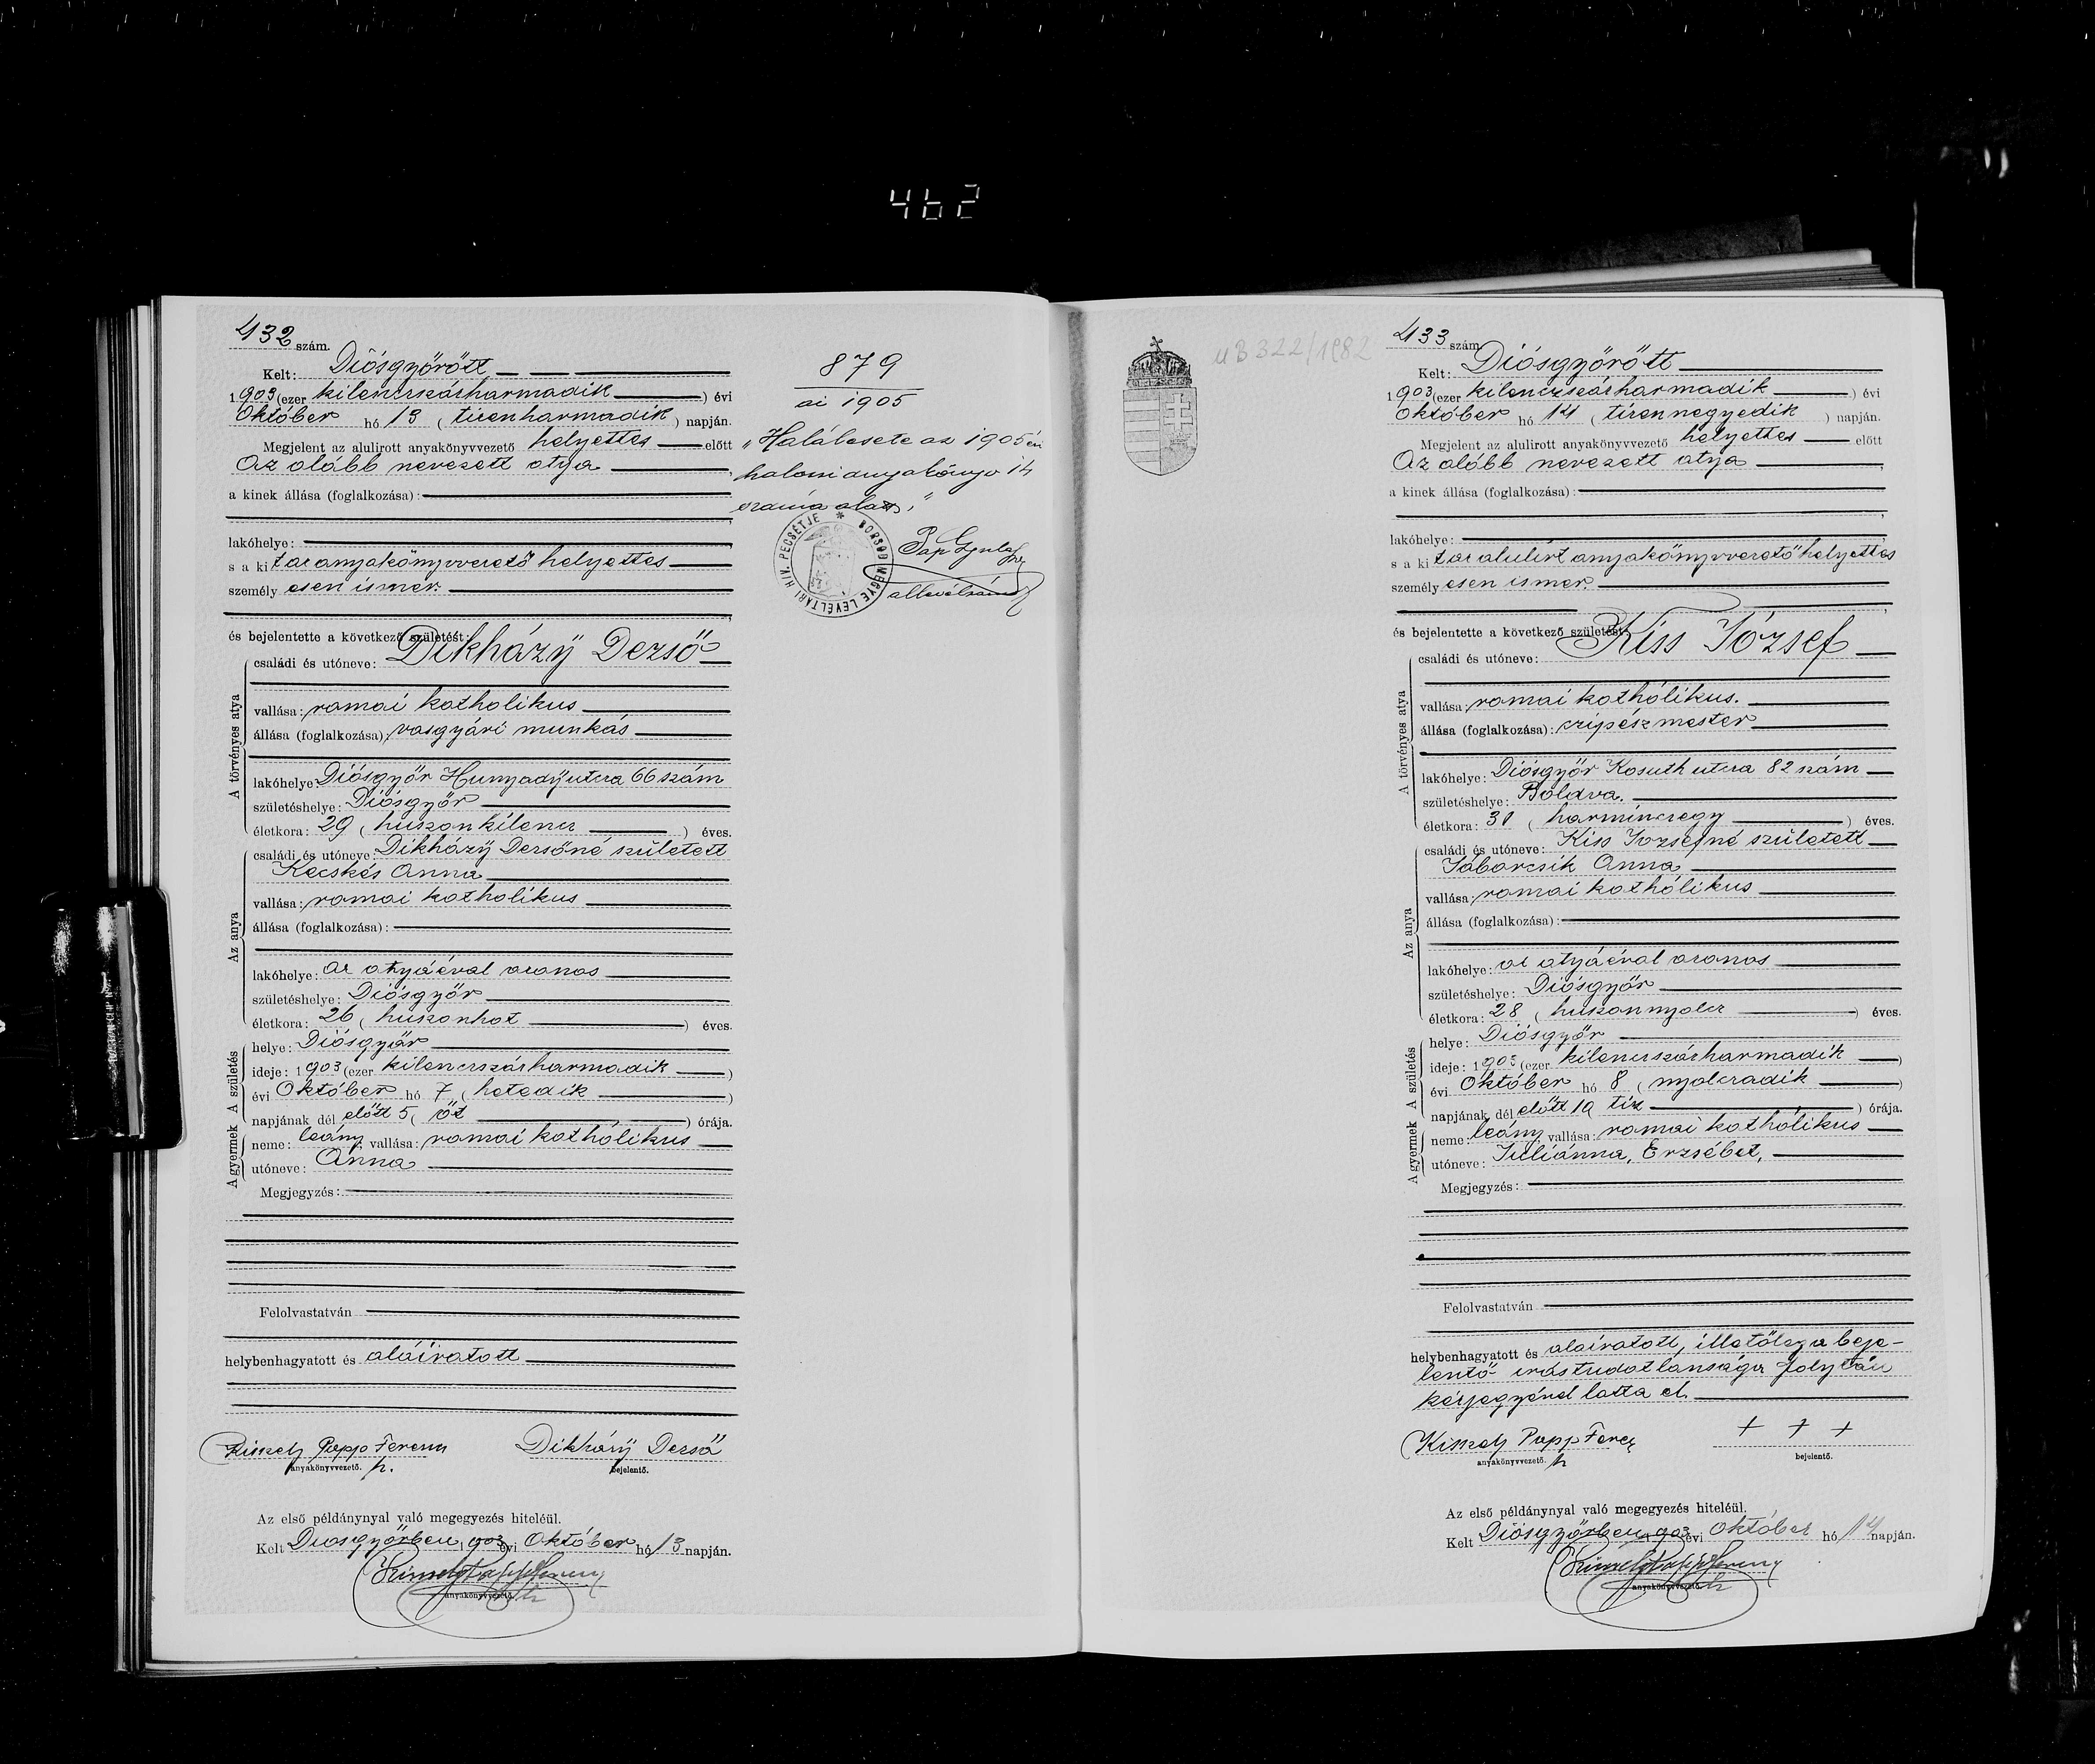 462
432 szám.
Kelt: Diósgyőrött
1903 (ezer kilenczszázharmadik ) évi
Október hó 13 ( tizenharmadik ) napján.
Megjelent az alulirott anyakönyvvezető helyettes előtt
Az alább nevezett atya
a kinek állása (foglalkozása):
lakóhelye:
s a kit az anyakönyvvezető helyettes
személyesen ismer.
és bejelentette a következő születést:
A törvényes atya
családi és utóneve: Dikházÿ Dezső
vallása: romai katholikus
állása (foglalkozása): vasgyári munkás
lakóhelye: Diósgyőr Hunyadÿ utcza 66 szám
születéshelye: Diósgyőr
életkora: 29 ( huszonkilencz ) éves.
Az anya
családi és utóneve: Dikházÿ Dezsőné született
Kecskés Anna
vallása: romai katholikus
állása (foglalkozása):
lakóhelye: az atyáéval azonos
születéshelye: Diósgyőr
életkora: 26 ( huszonhat ) éves.
A születés
helye: Diósgyőr
ideje: 1903 (ezer kilenczszázharmadik )
évi Október hó 7 ( hetedik )
napjának dél előtt 5 ( öt ) órája.
A gyermek
neme: leány vallása: romai kathólikus
utóneve: Anna
Megjegyzés:
Felolvastatván
helybenhagyatott és aláíratott
Kiszely Papp Ferencz Dikházÿ Dezső
anyakönyvvezető. h. bejelentő.
Az első példánynyal való megegyezés hiteléül.
Kelt Diósgyőrben, 1903 évi Október hó 13 napján.
Kiszely Papp Ferencz
anyakönyvvezető. h
879
ai 1905
„Halálesete az 1905 évi
halotti anyakönyv 14
száma alatt."
Pap Gyula
allevéltárnok
BORSOD MEGYE LEVÉLTÁRI HIV. PECSÉTJE *
UB 322/1982
433 szám.
Kelt: Diósgyőrött
1903 (ezer kilenczszázharmadik ) évi
Október hó 14 ( tizennegyedik ) napján.
Megjelent az alulirott anyakönyvvezető helyettes előtt
Az alább nevezett atya
a kinek állása (foglalkozása):
lakóhelye:
s a kit az alulírt anyakönyvvezető helyettes
személyesen ismer.
és bejelentette a következő születést:
A törvényes atya
családi és utóneve: Kiss József
vallása: romai kathólikus.
állása (foglalkozása): czipészmester
lakóhelye: Diósgyőr Kosuth utcza 82 szám
születéshelye: Boldva.
életkora: 31 ( harminczegy ) éves.
Az anya
családi és utóneve: Kiss Józsefné született
Jaborcsik Anna
vallása: romai kathólikus
állása (foglalkozása):
lakóhelye: az atyáéval azonos
születéshelye: Diósgyőr
életkora: 28 ( huszonnyolcz ) éves.
A születés
helye: Diósgyőr
ideje: 1903 (ezer kilenczszázharmadik )
évi Október hó 8 ( nyolczadik )
napjának dél előtt 10 tíz ) órája.
A gyermek
neme: leány vallása: romai kathólikus
utóneve: Juliánna, Erzsébet,
Megjegyzés:
Felolvastatván
helybenhagyatott és aláíratott, illetőleg a beje-
lentő irástudatlansága folytán
kézjegyével látta el.
Kiszely Papp Ferencz + + +
anyakönyvvezető. h bejelentő.
Az első példánynyal való megegyezés hiteléül.
Kelt Diósgyőrben, 1903 évi Október hó 14 napján.
Kiszely Papp Ferencz
anyakönyvvezető. h